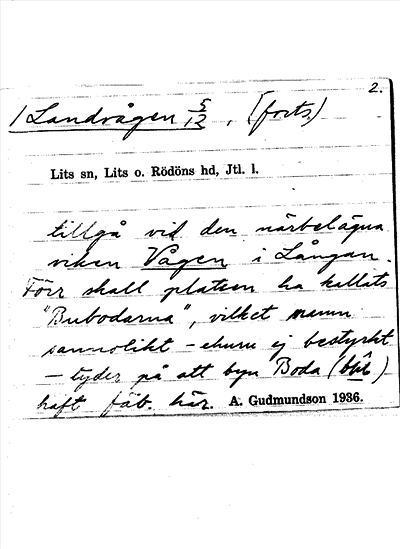 2.
/ Landvågen 5/12, (forts.)
Lits sn, Lits o. Rödöns hd, Jtl. l.
tillgå vid den närbelägna
viken Vågen i Långan.
Förr skall platsen ha kallats
"Bubodarna", vilket namn
sannolikt - ehuru ej bestyrkt
- tyder på att byn Boda (
haft fäb. här. A. Gudmundson 1936.